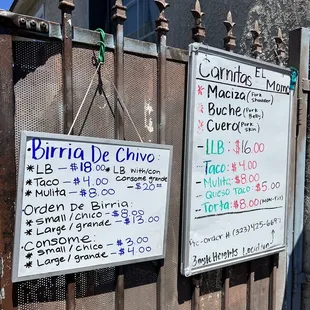 Birria De Chivo:
*LB - $18.00 *LB with/con
*Taco - $4.00 Consome grande
*Mulita - $8.00 - $20.00
Orden De Birria:
*Small / chico - $8.00
*Large / grande - $13.00
Consome:
*Small / chico - $3.00
*Large / grande - $4.00
Carnitas El Momo
*Maciza (Pork Shoulder)
*Buche (Pork Belly)
*Cuero (Pork Skin)
LLB: $16.00
Taco: $4.00
Mulita: $8.00
Queso Taco $5.00
Torta: $8.00
Pre-order # (323)
Heights Location